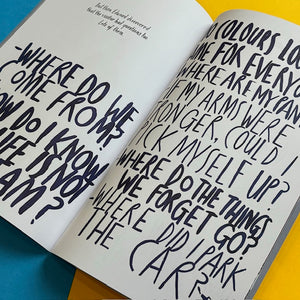 And then Edward discovered
that the visitor had questions too.
Lots of them.
-WHERE DO WE
COME FROM?
HOW DO I KNOW
LIFE IS NOT
COLOURS LOO
ME FOR EVERYO
WHERE ARE MY
MY ARMS WERE
COULD I
MYSELF UP?
WHERE DO THE THINGS
WE FORGET GO?
-WHERE DID I PARK
THE CAR?